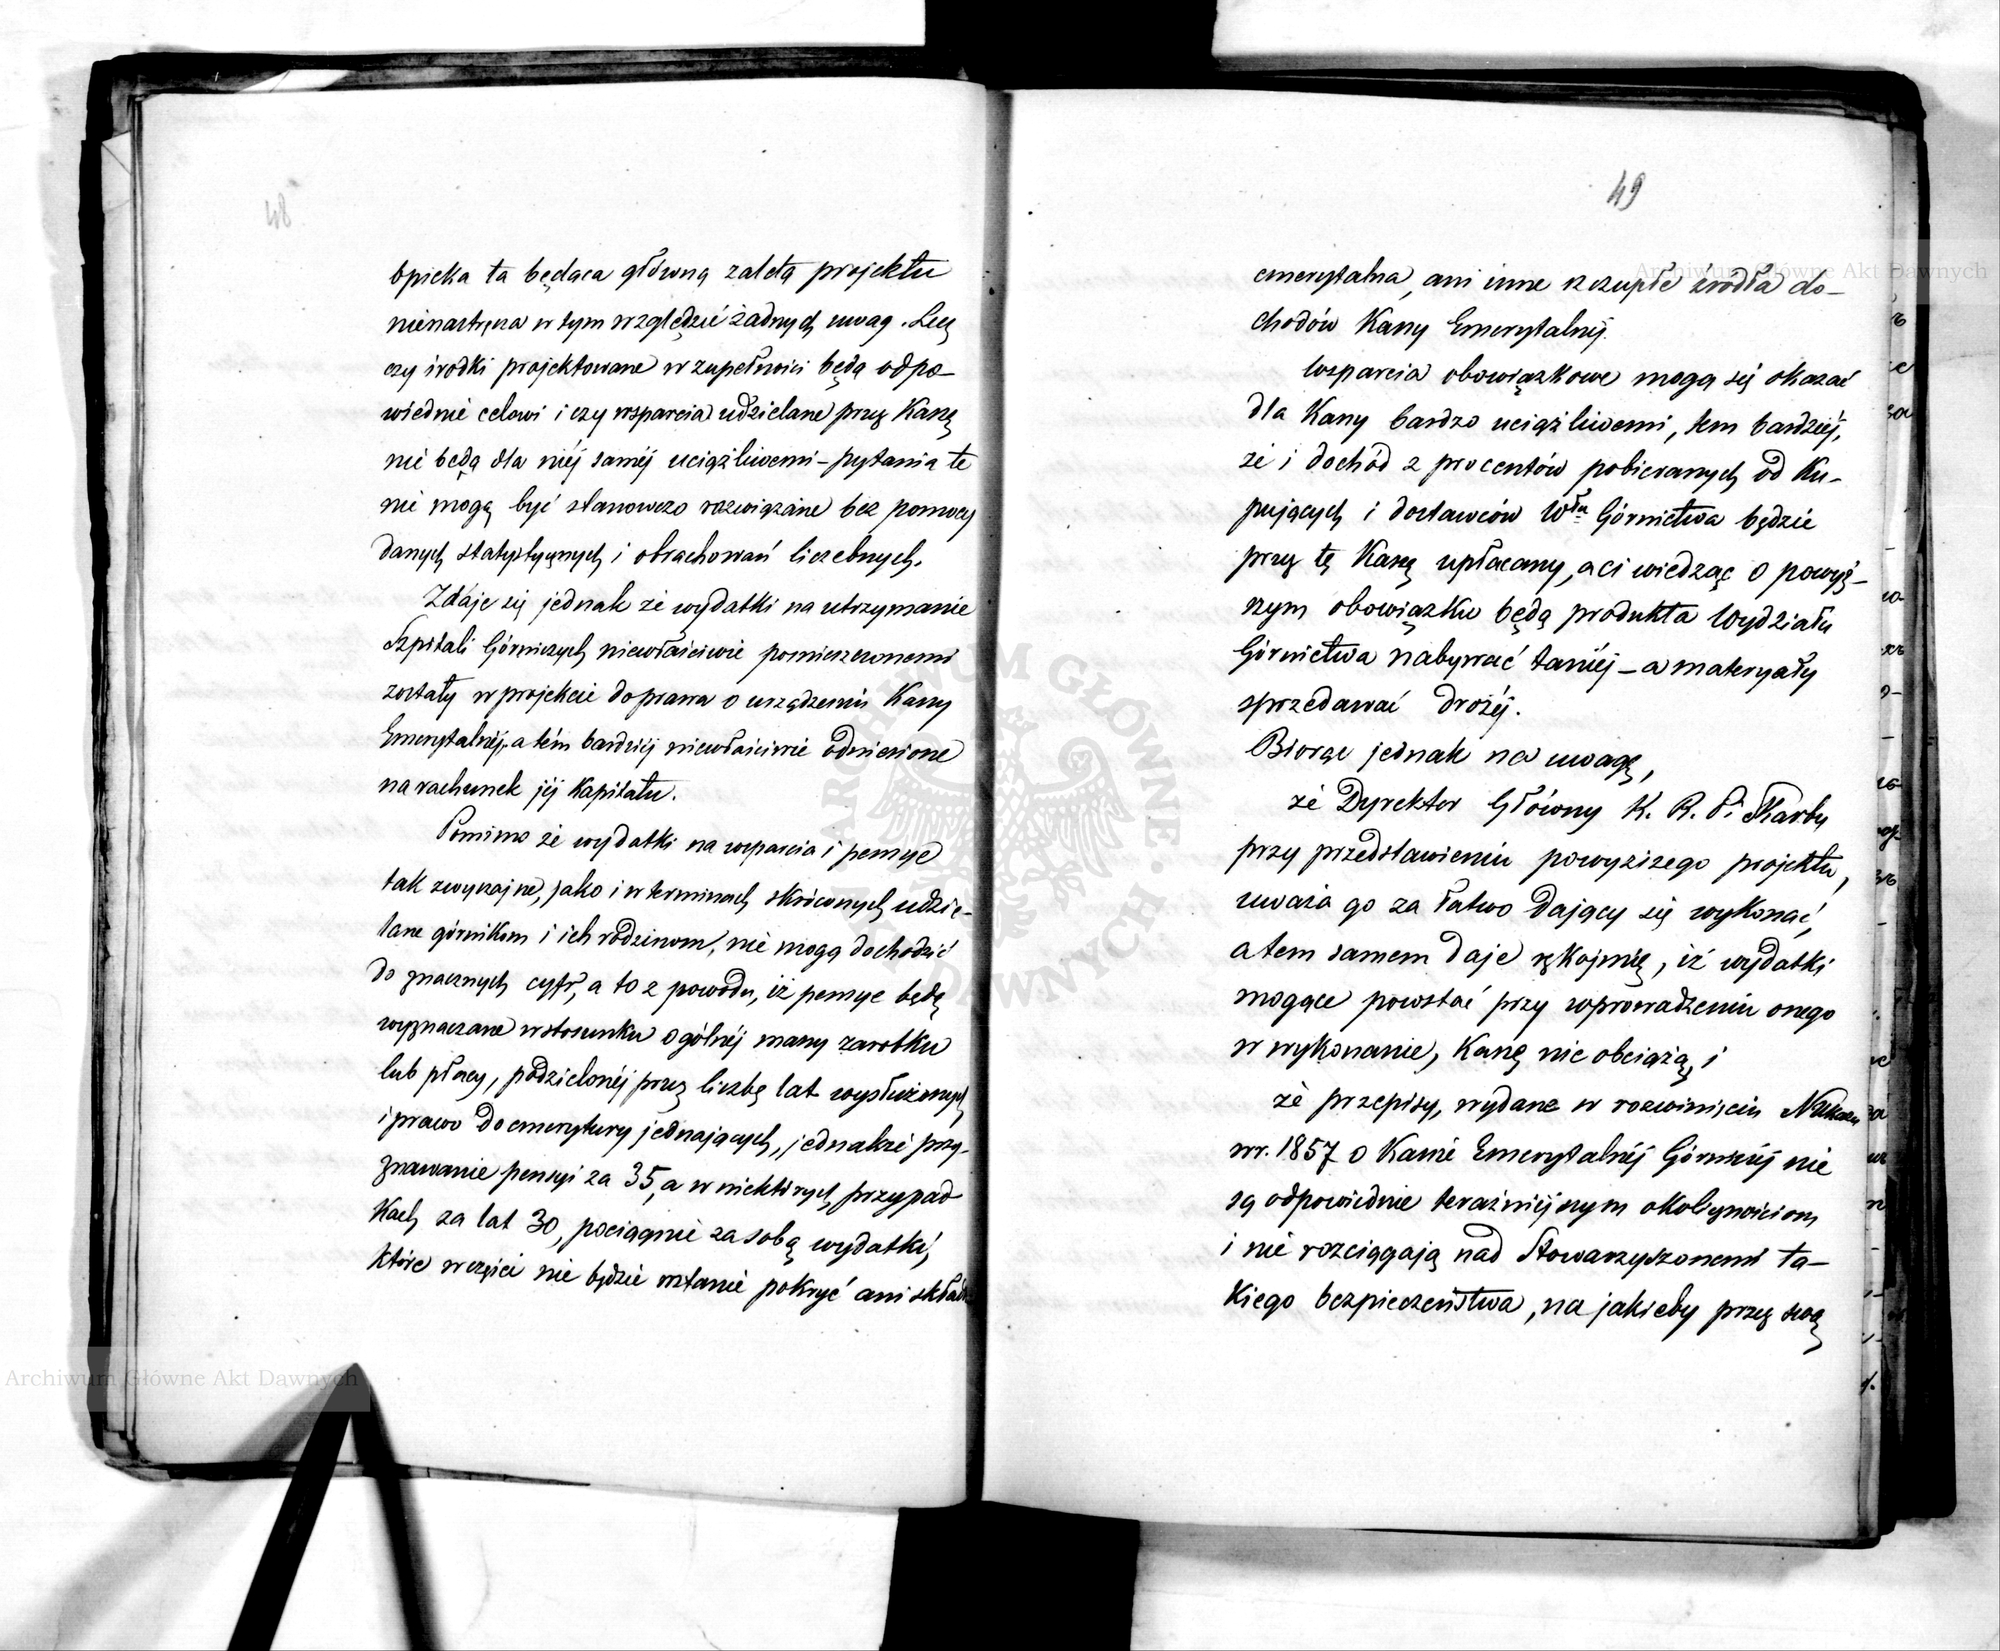 48
Opieka ta będąca główną zaletą projektu
nienastręcza w tym względzie żadnych uwag. Lecz
czy środki projektowane w zupełności będą odpo-
wiednie celowi i czy wsparcia udzielane przez Kassę
nie będą dla niéj saméj uciążliwemi – pytania te
nie mogą być stanowczo rozwiązane bez pomocy
danych statystycznych i obrachowań liczebnych.
Zdaje się jednak że wydatki na utrzymanie
Szpitali Górniczych niewłaściwie pomieszczonemi
zostały w projekcie do prawa o urządzeniu Kassy
Emerytalnéj, a tém bardziéj niewłaściwie odniesione
na rachunek jéj Kapitału.
Pomimo że wydatki na wsparcia i pensye
tak zwyczajne, jako i w terminach skróconych udzie-
lane górnikom i ich rodzinom, nie mogą dochodzić
do znacznych cyfr, a to z powodu, iż pensye będą
wyznaczane w stosunku ogólnéj massy zarobku
lub płacy, podzielonéj przez liczbę lat wysłużonych
i prawo do emerytury jednających, jednakże przy-
znawanie pensyi za 35, a w niektórych przypad
kach za lat 30, pociągnie za sobą wydatki,
które w części nie będzie w stanie pokryć ani składka
49
emerytalna, ani inne szczupłe źródła do-
chodów Kassy Emerytalnéj.
Wsparcia obowiązkowe mogą się okazać
dla Kassy bardzo uciążliwemi, tem bardziéj,
że i dochód z procentów pobieranych od Ku-
pujących i dostawców Wału Górnictwa będzie
przez tę Kassę upłacany, a ci wiedząc o powyż-
szym obowiązku będą produkta Wydziału
Górnictwa nabywać taniéj – a materyały
sprzedawać drożéj.
Biorąc jednak na uwagę,
że Dyrektor Główny K. R. P. i Skarbu
przy przedstawieniu powyższego projektu,
uważa go za łatwo dający się wykonać,
a tem samem daje rękojmię, iż wydatki
mogące powstać przy wprowadzeniu onego
w wykonanie, Kassę nie obciążą, i
że przepisy, wydane w rozwinięciu N. Ukazu
w r. 1857 o Kassie Emerytalnéj Górniczéj nie
są odpowiednie teraźniéjszym okolicznościom
i nie rozciągają nad Stowarzyszonemi ta-
kiego bezpieczeństwa, na jakieby przez swą
Archiwum Główne Akt Dawnych
Archiwum Główne Akt Dawnych
ARCHIWUM GŁÓWNE AKT DAWNYCH